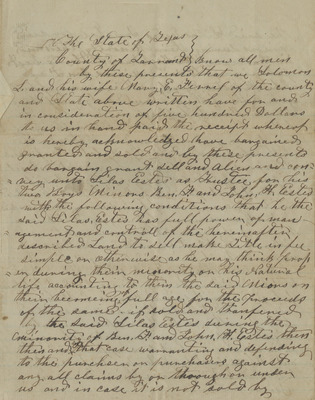 The State of Texas }
County of Tarrant } Know all men
by these presents that we Solomon
L. and his wife Mary E. of the county
and State above written have for and
in consideration of five hundred Dollars
to us in hand paid the receipt whereof
is hereby acknowledged have bargained
granted and sold and by these presents
do bargain grant sell and Alien and con
vey unto Silas Estes as Trustee for his
two Boys Minors Ben, F. and John, H. Estes
with the following conditions that he the
said Silas Estes has full power of man
agement and controll of the hereinafter
described Land to sell make Title in fee
simple or otherwise as he may think prop
er during their minority or his Natural
life according to them the said Minors on
their becoming full age for the Proceeds
of the same if sold and transfered
by the said Silas Estes during the
minority of Ben, F. and John, H. Estes then
and that case warranting and defending
to the purchaser or purchasers against
any all claims by or through or under
us and in case it is not sold by